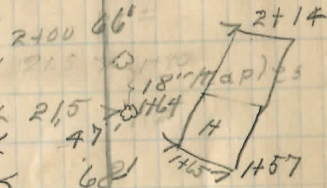 2+00 66'
2+14
18" Maples
21,5 1+64
47'
H
1+65
1+57
68'